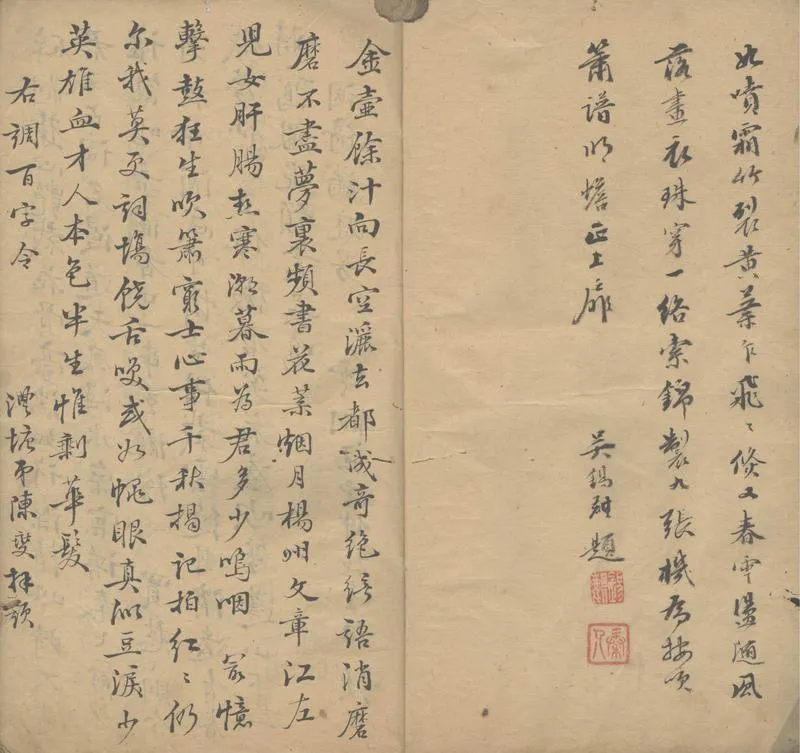 如噴霜竹裂黃葉乍飛〻倏又春雪盪随風
落畫衣珠穿一絡索錦製九張機為按頭
簫譜明蟾正上扉
吳錫麒題
金壷餘汁向長空灑去都成奇絶綺語消磨
磨不盡夢裏頻書花葉烟月楊州文章江左
児女肝腸热寒潮暮雨為君多少嗚咽 最憶
擊鼓狂生吹簫窮士心事千秋揭記拍紅〻仍
尔我莫更詞塲饒舌唉或如
眼真似豆淚少
英雄血才人本色半生惟剰華髮
右調百字令
澧塘弟陳燮拜題